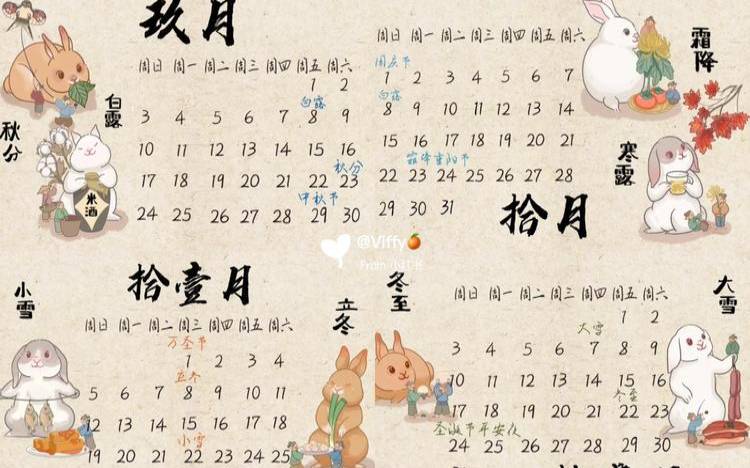 玖月
周日 周一 周二 周三 周四 周五 周六
1 2
白露
3 4 5 6 7 8 9
10 11 12 13 14 15 16
秋分
17 18 19 20 21 22 23
中秋节
24 25 26 27 28 29 30
白露
秋分
米酒
周日 周一 周二 周三 周四 周五 周六
国庆节
1 2 3 4 5 6 7
白露
8 9 10 11 12 13 14
15 16 17 18 19 20 21
霜降重阳节
22 23 24 25 26 27 28
29 30 31
拾月
霜降
寒露
@Viffy🍊
From 小红书
拾壹月
周日 周一 周二 周三 周四 周五 周六
万圣节
1 2 3 4
立冬
5 6 7 8 9 10 11
12 13 14 15 16 17 18
小雪
19 20 21 22 23 24 25
小雪
立冬
冬至
周日 周一 周二 周三 周四 周五 周六
1 2
大雪
3 4 5 6 7 8 9
10 11 12 13 14 15 16
冬至
17 18 19 20 21 22 23
圣诞节平安夜
24 25 26 27 28 29 30
大雪